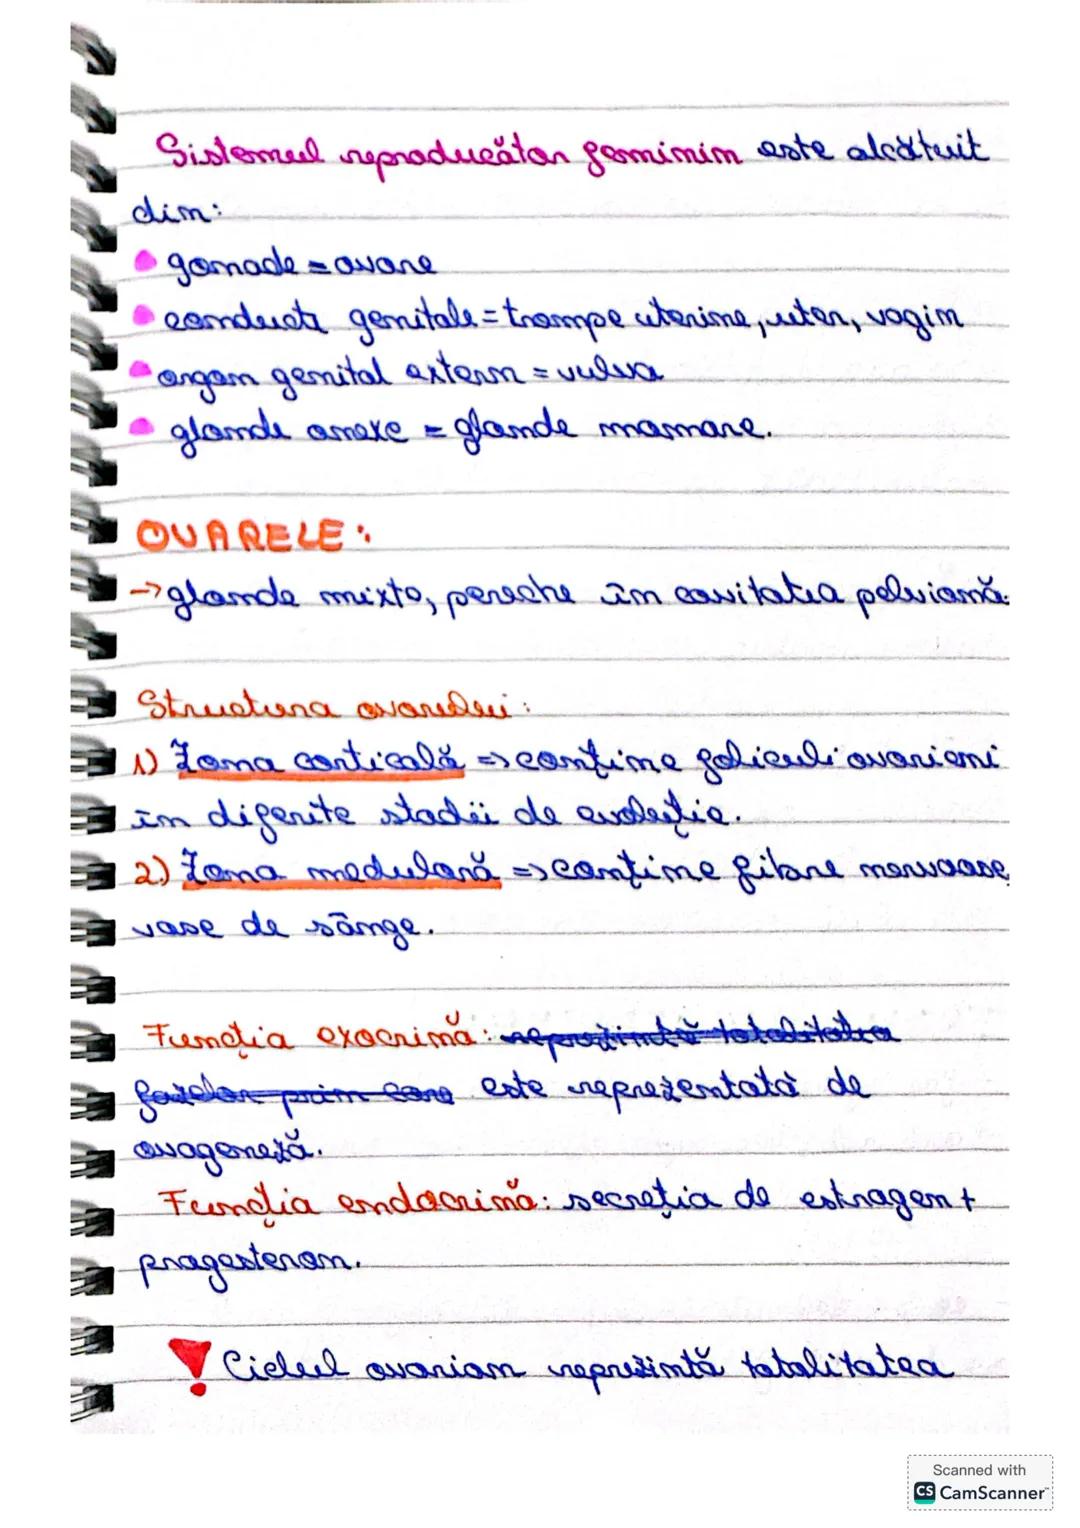 Sistemul reproducător feminin este alcătuit
din:
gonade = ovare
conducte genitale = trompe uterine, uter, vagin
organ genital extern = vulva
glande anexe = glande mamare.
OVARELE:
→ glande mixte, pereche în cavitatea pelviană.
Structura ovarului:
1) Zona corticală => conține foliculi ovarieni
în diferite stadii de evoluție.
2) Zona medulară => conține fibre nervoase,
vase de sânge.
Funcția exocrină: reprezintă totalitatea
fazelor prin care este reprezentată de
ovogeneză.
Funcția endocrină: secreția de estrogen +
progesteron.
! Ciclul ovarian reprezintă totalitatea
Scanned with
CS CamScanner